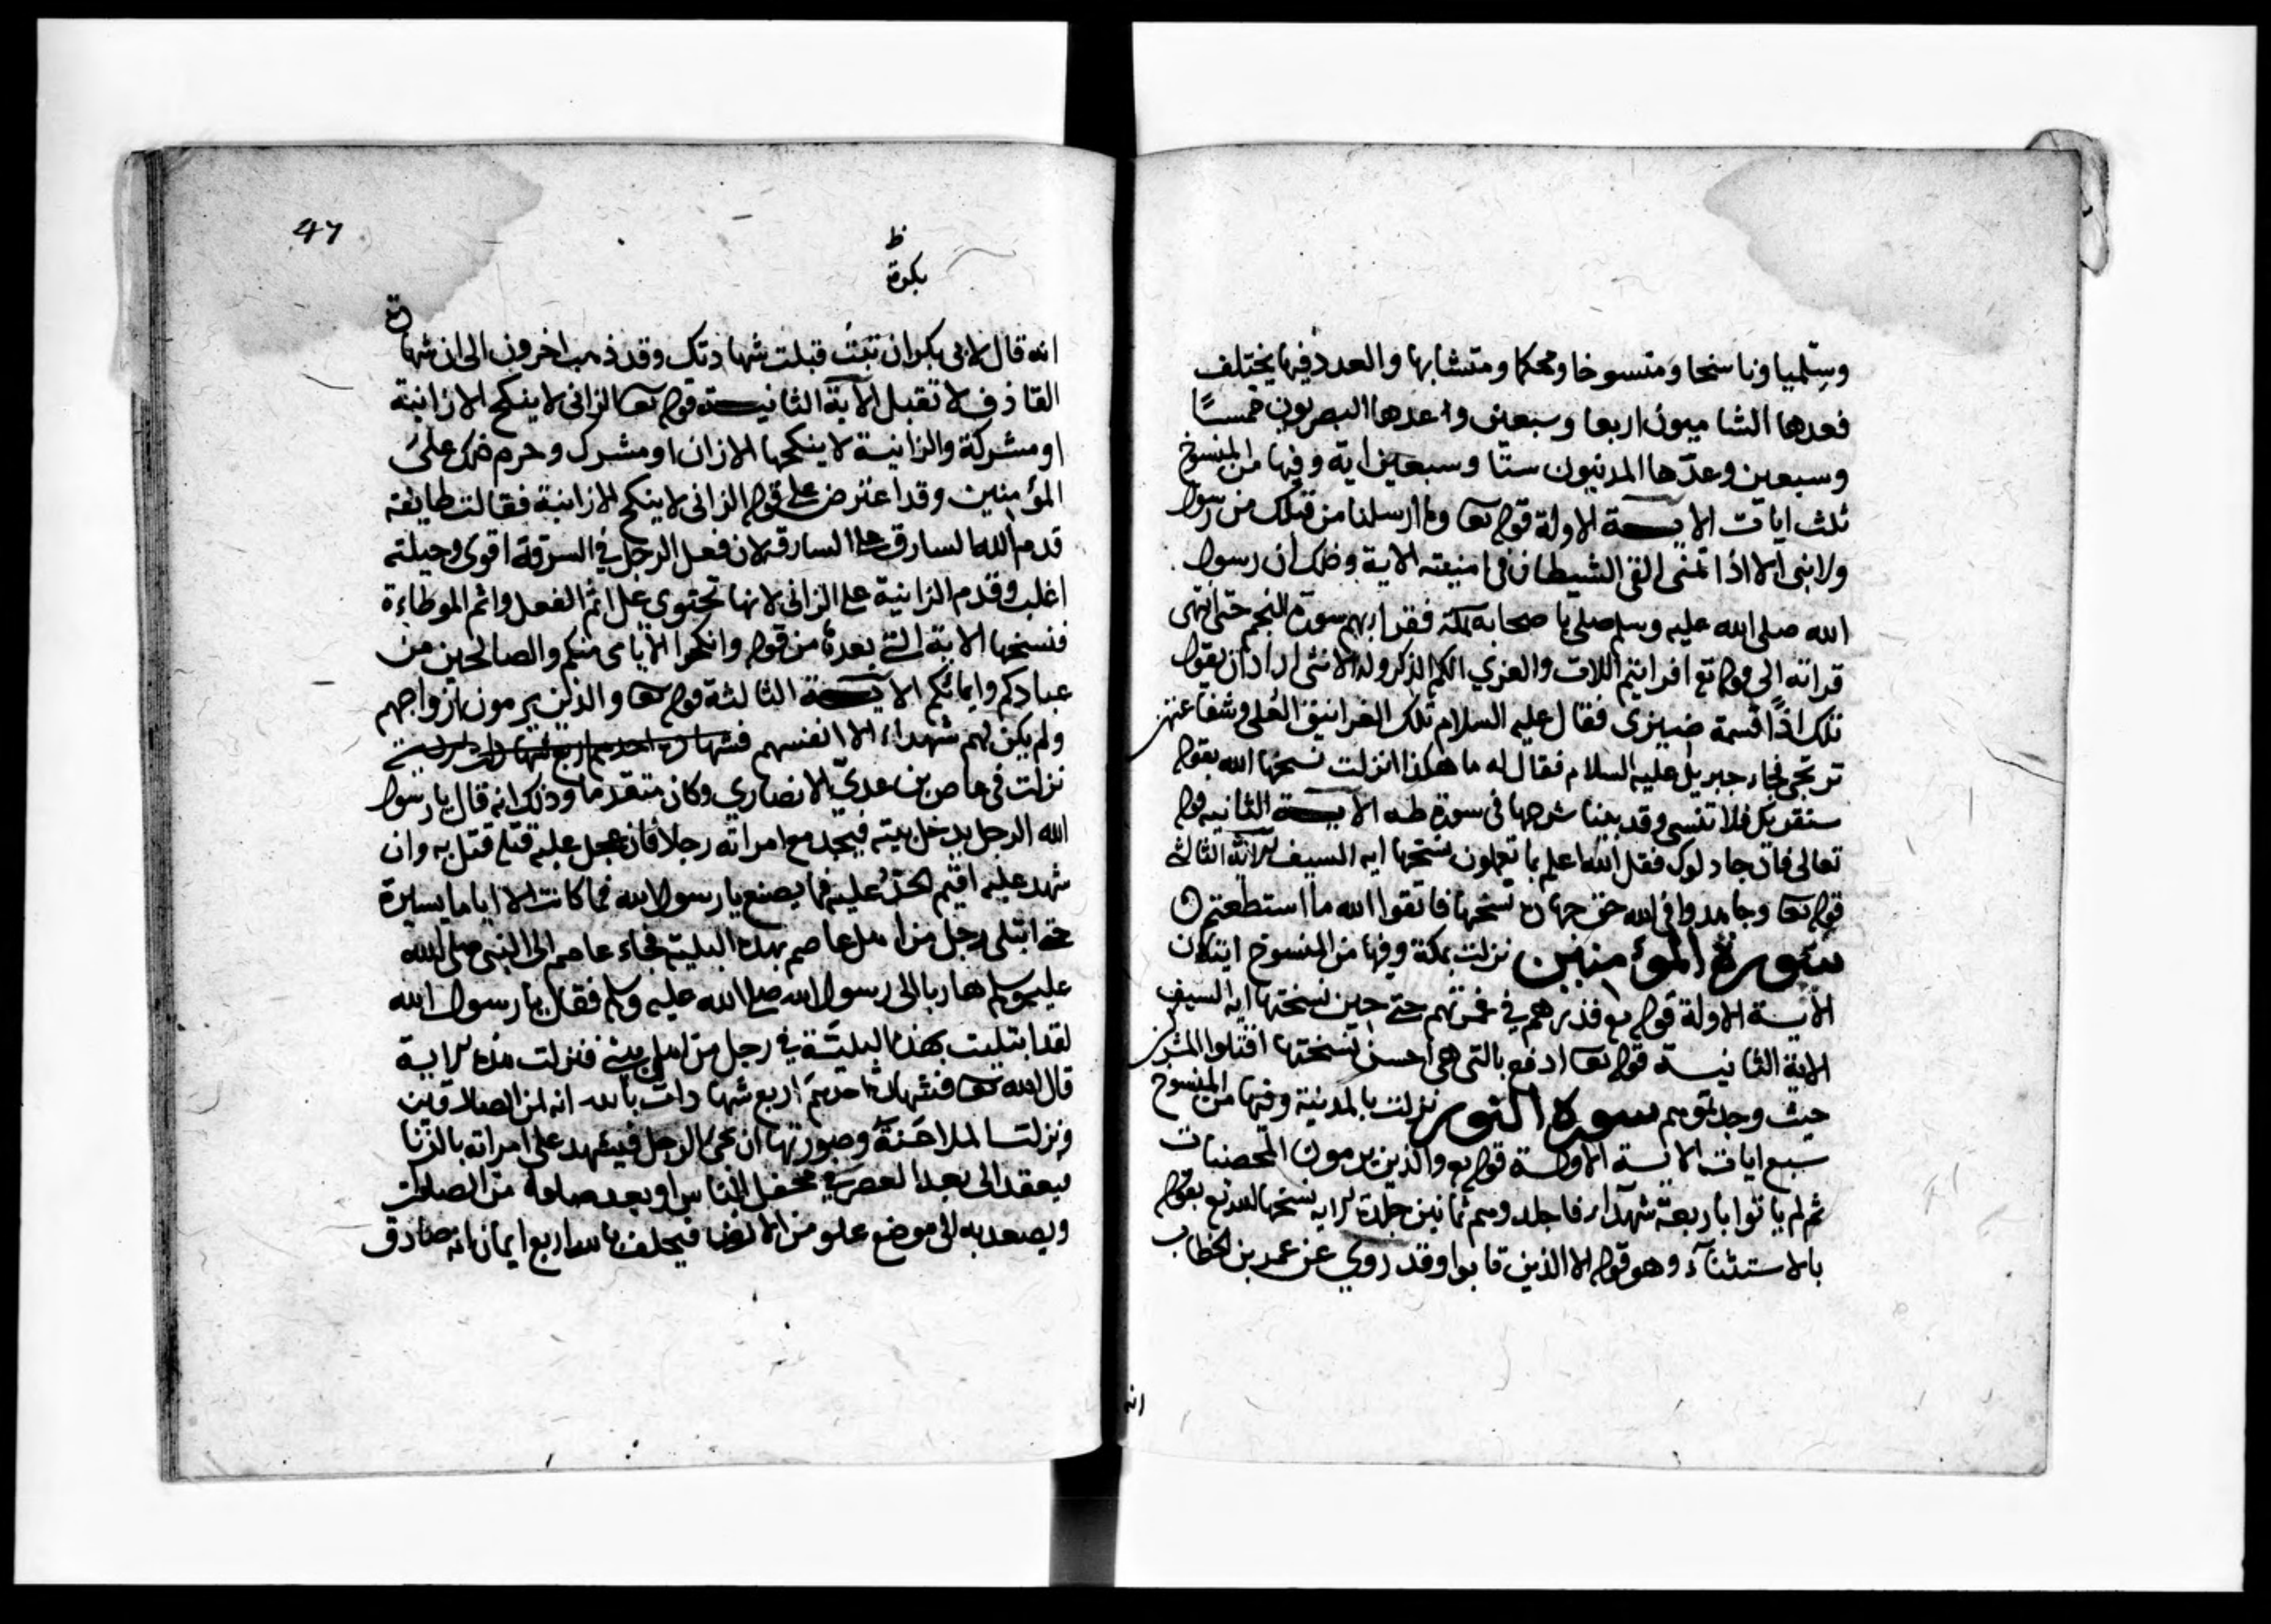 وسلميا وناسخا ومنسوخا ومحكما ومتشابها والعدد فيها يختلف
فعدها الشاميون اربعا وسبعين وعدها البصريون خمسًا
وسبعين وعدّها المدنيون ستّا وسبعين اية وفيها من المنسوخ
ثلث ايات الايــة الاولة قوله تعا وما ارسلنا من قبلك من رسول
ولا نبى الا اذا تمنى القى الشيطان فى امنيته الاية وذلك ان رسول
الله صلى الله عليه وسلم صلى باصحابه بمكة فقرا بهم سورة النجم حتى انتهى
قراته الى قوله تع افرايتم اللات والعزي الكم الذكر وله الانثى اراد ان يقول
تلك اذًا قسمة ضيزى فقال عليه السلام تلك الغرانيق العُلى وشفاعتهن
ترتجى فجاء جبريل عليه السلام فقال له ما هكذا انزلت نسخها الله بقوله
سنقريك فلا تنسى وقد بينا شرحها فى سورة طه الايــة الثانيه قوله
تعالى فان جادلوك فقل الله اعلم بما تعملون نسختها ايه السيف الاية الثالثة
قوله تعا وجاهدوا فى الله حق جهاده نسخها فاتقوا الله ما استطعتم
سورة المؤمنين نزلت بمكة وفيها من المنسوخ ايتان
الايــة الاولة قوله تع فذرهم في غمرتهم حتى حين نسختها ايه السيف
الاية الثانيــة قوله تعا ادفع بالتى هى احسن نسختها اقتلوا المشركين
حيث وجدتموهم سورة النور نزلت بالمدينة وفيها من المنسوخ
سبع ايات الايــة الاولــة قوله تع والذين يرمون المحصنات
ثم لم ياتوا باربعة شهدآء فاجلدوهم ثمانين جلدة الايه نسخها الله تع بقوله
بالاستثنآء وهو قوله الا الذين تابوا وقد روي عن عمر بن الخطاب
انه
47
ظ
بكرة
انه قال لابى بكر ان تبت قبلت شهادتك وقد ذهب اخرون الى ان شهادة
القاذف لا تقبل الآية الثانيــة قوله تعا الزانى لا ينكح الا زانية
او مشركة والزانيــة لا ينكحها الا زان او مشرك وحرم ذلك على
المؤمنين وقد اعترض على قوله الزانى لا ينكح الا زانية فقالت طايفة
قدم الله السارق على السارقة لان فعل الرجل في السرقة اقوى وحيلته
اغلب وقدم الزانية على الزانى لانها تحتوى على اثم الفعل واثم الموطاءة
فنسخها الاية التى بعدها من قوله وانكحوا الايامى منكم والصالحين من
عبادكم وايمائكم الايــة الثالثة قوله تعا والذين يرمون ازواجهم
ولم يكن لهم شهداء الا انفسهم فشهادة احدهم اربع شهادات
نزلت فى عاصم بن عديّ الانصاري وكان متقدما وذلك انه قال يا رسول
الله الرجل يدخل بيته فيجد مع امراته رجلا فان عجل عليه قتله قتل به وان
شهد عليه اقيم الحد عليه فما يصنع يا رسول الله فما كانت الا اياما يسيرة
حتى ابتلى رجل من اهل عاصم بهذه البلية فجاء عاصم الى النبى صلى الله
عليه وسلم هاربا الى رسول الله صلى الله عليه وسلم فقال يا رسول الله
لقد ابتليت بهذه البليّة في رجل من اهل بيتى فنزلت هذه الاية
قال الله تعا فشهادة احدهم اربع شهادات بالله انه لمن الصادقين
ونزلت الملاعَنة وصورتها ان يحى الرجل فيشهد على امراته بالزنا
فيعقد الى بعد العصر في محفل الناس او بعد صلوة من الصلوات
ويصعد به الى موضع علو من الارض فيحلف بالله اربع ايمان انه صادق